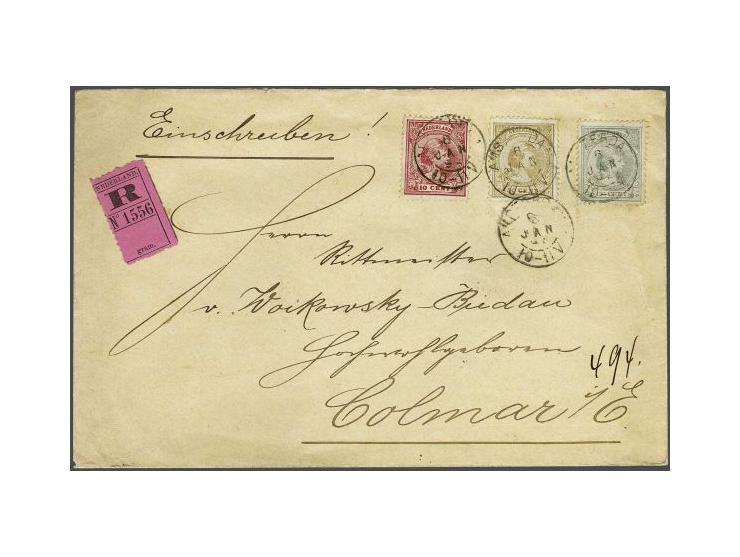 Einschreiben!
NEDERLAND.
R
No 1556
gram.
NEDERLAND
10 CENT
JAN
10-11V
AMS
JAN
AMS
8
JAN
10-11V
Herrn
Rittmeister
v. Woikowsky-Biedau
Hochwohlgeboren
494.
Colmar i/E